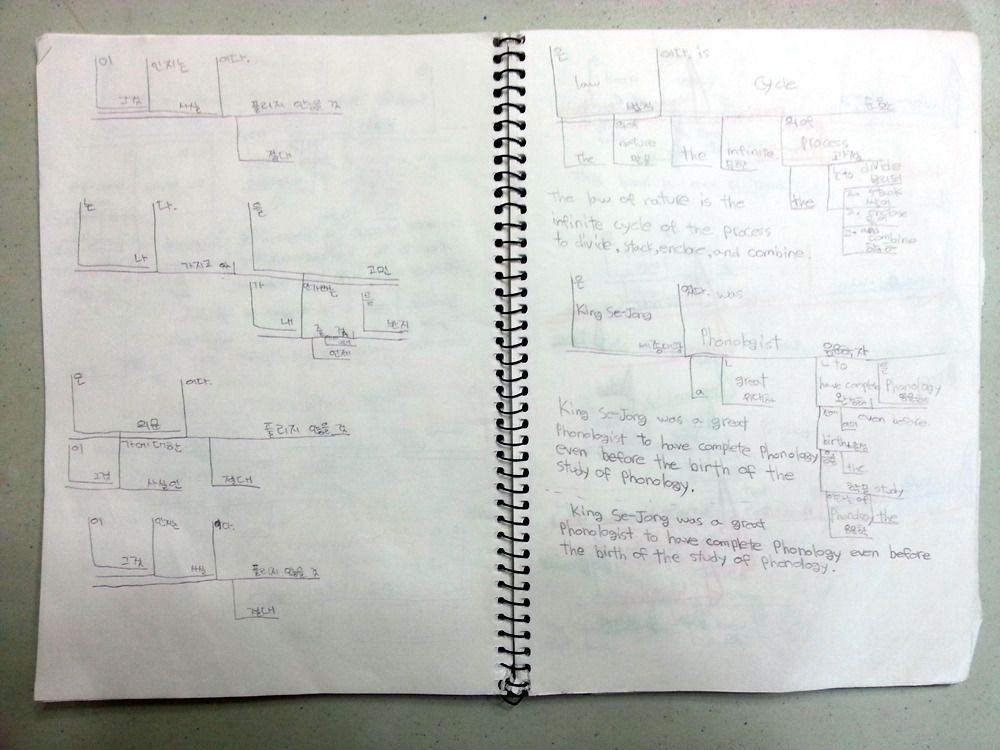 이 인지는 이다.
그것 사실 풀리지 않을 것
절대
는 다. 을
나 가지고 고민
가
내 반지
언제
은 이다.
의문 풀리지 않을 것
이 가에 대하는
그것 사실인 절대
이 인지는 이다.
그것 사실 풀리지 않을 것
절대
은 이다. is
law Cycle
법칙 순환
의 of 의 of
nature process
The 만물 the infinite 과정
무한 the ㄴ to divide
stack
enclose
and
combine
The law of nature is the
infinite cycle of the process
to divide, stack, enclose, and combine.
은 이다. was
King Se-Jong
세종대왕 Phonologist 음운학자
ㄴ ㄴ to 을
a great have complete Phonology
위대한 완성한 음운학
even before
birth
the
학문 study
of
Phonology the
음운학
King Se-Jong was a great
Phonologist to have complete Phonology
even before the birth of the
study of Phonology.
King Se-Jong was a great
Phonologist to have complete Phonology even before
the birth of the study of Phonology.